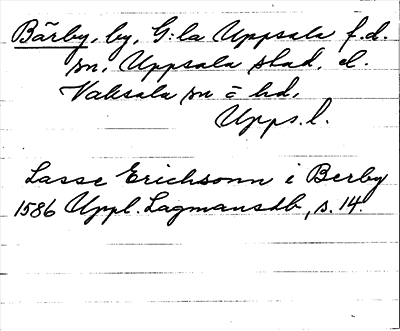 Bärby, by, G:la Uppsala f.d.
sn, Uppsala stad, el.
Vaksala sn o hd,
Upps.l.
Lasse Erichsonn i Berby
1586 Uppl. Lagmansdb, s. 14.